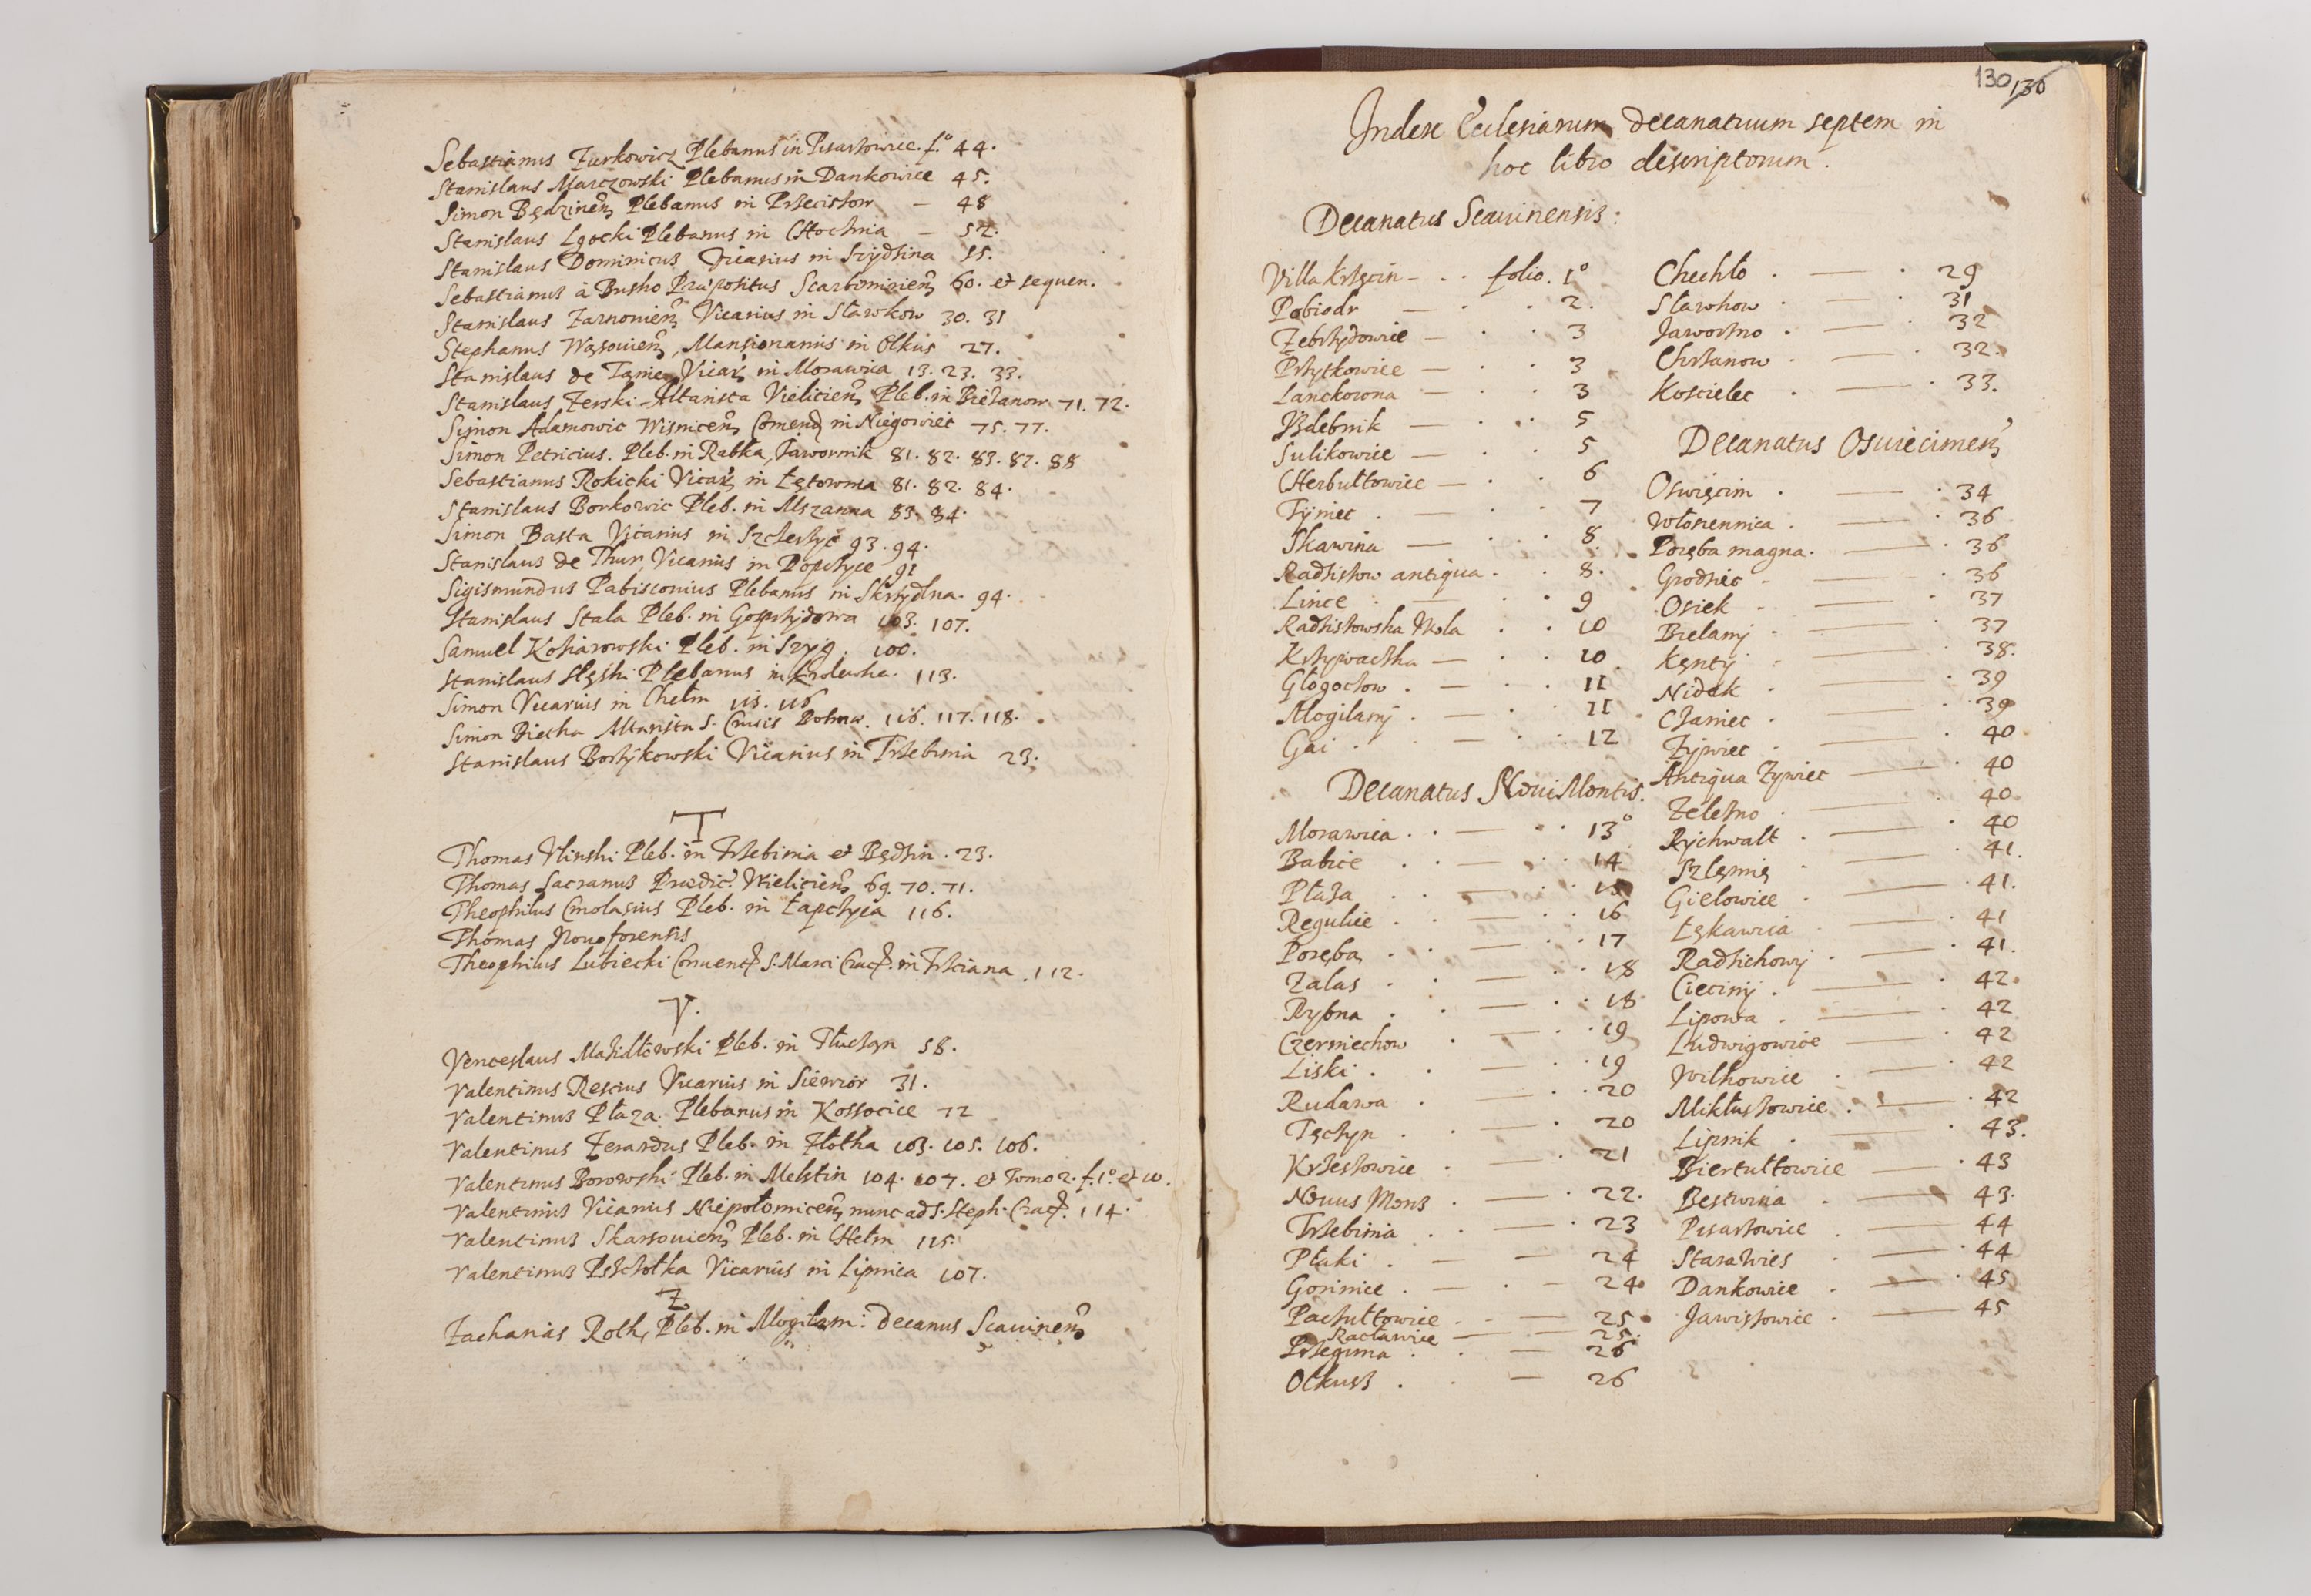 Sebastianus Zurkowicz Plebanus in Pisarzowice. f.° 44.
Stanislaus Marczowski Plebanus in Dankowice 45.
Simon Będzinen Plebanus in Przeciszow — 48
Stanislaus Lgocki Plebanus in Chochnia — 52.
Stanislaus Dominicus Vicarius in Szÿdzina 55.
Sebastianus à Busko Præpositus Scarbimirien 60. et sequen.
Stanislaus Żarnonien Vicarius in Sławkow 30. 31
Stephanus Wąsowien, Mansionarius in Olkus 27.
Stanislaus de Vicar in Morawica 13. 23. 33.
Stanislaus Zerski Altarista Vielicien Pleb. in Bieżanow 71. 72.
Simon Adamowic Wisnicen Comend in Niegowiec 75. 77.
Simon Petricius. Pleb. in Rabka, Jawornik 81. 82. 83. 87. 88
Sebastianus Rokicki Vicar in Łętownia 81. 82. 84.
Stanislaus Borkowic Pleb. in Mszanna 83. 84.
Simon Basta Vicarius in Szczerzyc 93. 94.
Stanislaus de Thur, Vicarius in Dopczyce 91
Sigismundus Pabisconius Plebanus in Skrzydlna. 94.
Stanislaus Stala Pleb. in Gosprzydowa 103. 107.
Samuel Kosiarowski Pleb. in Szyg. 100.
Stanislaus Plebanus in 113.
Simon Vicarius in Chełm 113. 116
Simon Biecka Altarista S. Crucis Bohnae. 116. 117. 118.
Stanislaus Borzÿkowski Vicarius in Trzebinia 23.
T
Thomas Ulinski Pleb. in Trzebinia et Będzin. 23.
Thomas Sacranus Prædic. Wielicien 69. 70. 71.
Theophilus Cmolasius Pleb. in Łapczyca 116.
Thomas Novoforensis
Theophilus Lubiecki Convent S. Marci Crac. in Trzciana. 112.
V.
Venceslaus Mazidłowski Pleb. in Tłuczan 58.
Valentinus Rescius Vicarius in Siewior 31.
Valentinus Płaza. Plebanus in Kossocice 72
Valentinus Zerardus Pleb. in Złotha 103. 105. 106.
Valentinus Borowski Pleb. in Melstin 104. 107. et Tomo 2. f. 1° et 10.
Valentinus Vicarius Niepołomicen nunc ad S. Steph. Crac. 114.
Valentinus Skarsovien Pleb. in Chełm 115.
Valentinus Pszczołka Vicarius in Lipnica 107.
Z
Zacharias Roth, Pleb. in Mogilam: Decanus Scavinen
130 136
Index Ecclesiarum decanatuum septem in
hoc libro descriptorum.
Decanatus Scavinensis:
Villa Krzęcin - . . folio. 1°
Pobiodr — . . 2.
Zebrzÿdowice — . . 3
Przytkowice — . . 3
Lanckorona — . . 3
Jzdebnik — . . 5
Sulikowice — . . 5
Cherbułtowice — . . 6
Tÿniec . — . . 7
Skawina — . . 8
Radziszow antiqua . . 8.
Lince . — . 9
Radziszowska Wola . . 10
Krzywaczka — . . 10
Głogoczow . — . . 11
Mogilanÿ . — . . 11
Gai . — . . 12
Decanatus Novi Montis.
Morawica . . — . . 13°
Babice . . — . . 14
Płaza . . — . . 15
Regulice . . — . . 16
Poręba . . — . . 17
Zalas . . — . . 18
Rybna . . — . . 18
Czerniechow . — . . 19
Liski . . — . 19
Rudawa . — . . 20
Tęczyn . . — . 20
Krzeszowice . — . 21
Novus Mons . — . 22.
Trzebinia . . — . 23
Płaki . — — 24
Gorinice . — . - 24
Paczułtowice . - — 25
Racławice — — 25.
Przeginia . . — 26
Olkusz . . — 26
Chechło . — . 29
Sławkow . — . 31
Jaworzno . — . 32
Chrzanow . — . 32.
Koscielec . — . 33.
Decanatus Osviecimen
Oswięcim . — . 34
Włosiennica . — . 36
Poręba magna. — . 36
Grodziec . — . 36
Osiek . — 37
Bielanÿ . — 37
Kęntÿ . — 38.
Nidek . — . 39
Czaniec . — . 39
Zÿwiec . — . 40
Antiqua Zywiec — . 40
Zelezno . — . 40.
Rÿchwałt . — . 40
Szlęmię . — 41.
Gielowice . — . 41.
Łękawica . — . 41
Radzichowÿ . — . 41.
Ciecinÿ . — . 42.
Lipowa . — 42
Ludwigowice — . 42
Wilkowice . — . 42
Mikłuszowice . — . 42
Lipnik . — . 43.
Biertułtowice — . 43
Bestwina . — . 43.
Pisarzowice . — 44
Starawies . — . 44
Dankowice . — . 45
Jawiszowice . — 45